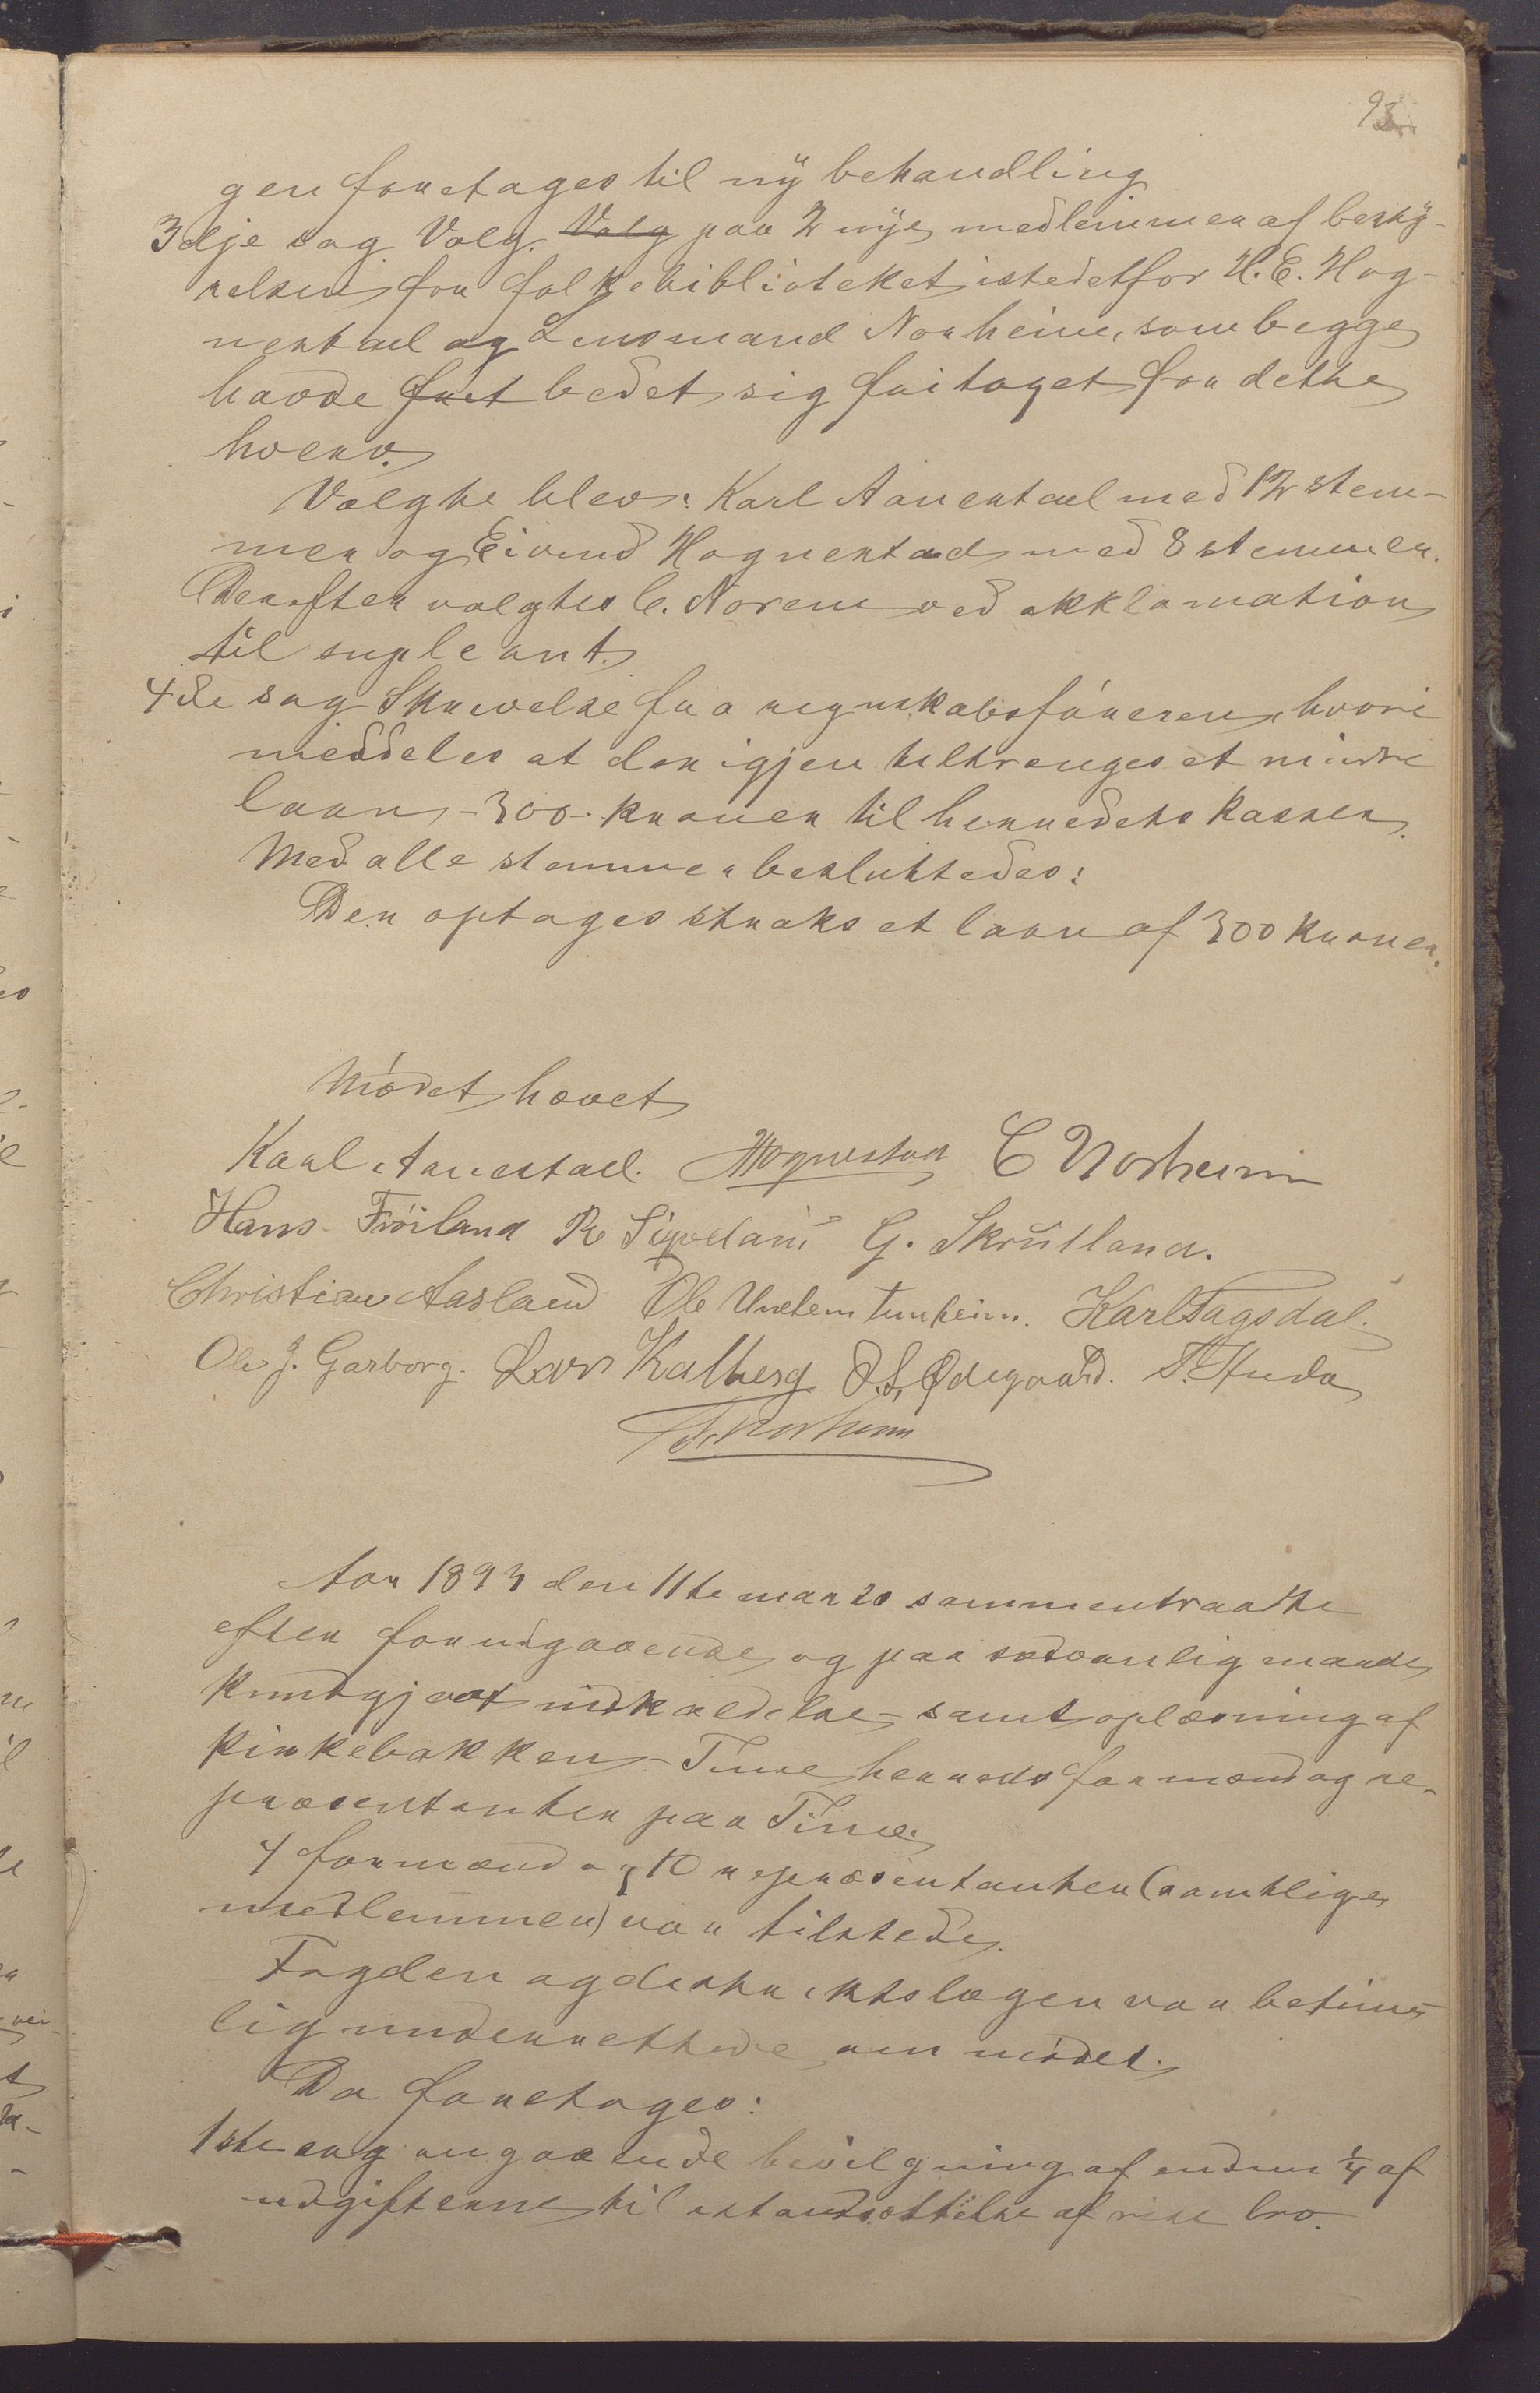 93
gen foretages til ny behandling
3dje sag Valg. Valg paa 2 nye medlemmer af besty-
relsen for folkebiblioteket istedetfor H. E. Hog-
nestad og Lensmand Norheim, som begge
havde bedet sig fritaget for dette
hverv.
Valgte blev: Karl Aanestad med 12 stem-
mer og Eivind Hognestad med 8 stemmer.
Derefter valgtes C. Norem ved akklamation
til supleant.
4de sag Skrivelse fra regnskabsføreren, hvori
meddeles at der igjen tiltrænges et mindre
laan - 300 - kroner til herredets kasser.
Med alle stemmer besluttedes:
Der optages straks et laan af 300 kroner.
Mødet hævet
Karl Aanestad. Hognestad C Norheim
Hans Fröiland R Sigvedani G. Skrutland.
Christian Aasland Ole Undem Tunheim. Karl Fagsdal.
Ole J. Garborg. Lars Kalberg O. S. Ødegaard. T. Aada
Norheim
Aar 1893 den 11te marts sammentraadte
efter forudgaaende og paa sædvanlig maade
kundgjort indkaldelse samt oplæsning af
kirkebakken Time herreds formænd og re-
præsentanter paa Time.
4 formænd og 10 repræsentanter (samtlige
medlemmer) var tilstede.
Fogden og distriktslægen var betime-
lig underrettede om mødet.
Da foretages:
1ste sag angaaende bevilgning af endnu 1/4 af
udgifterne til istandsættelse af rise bro.